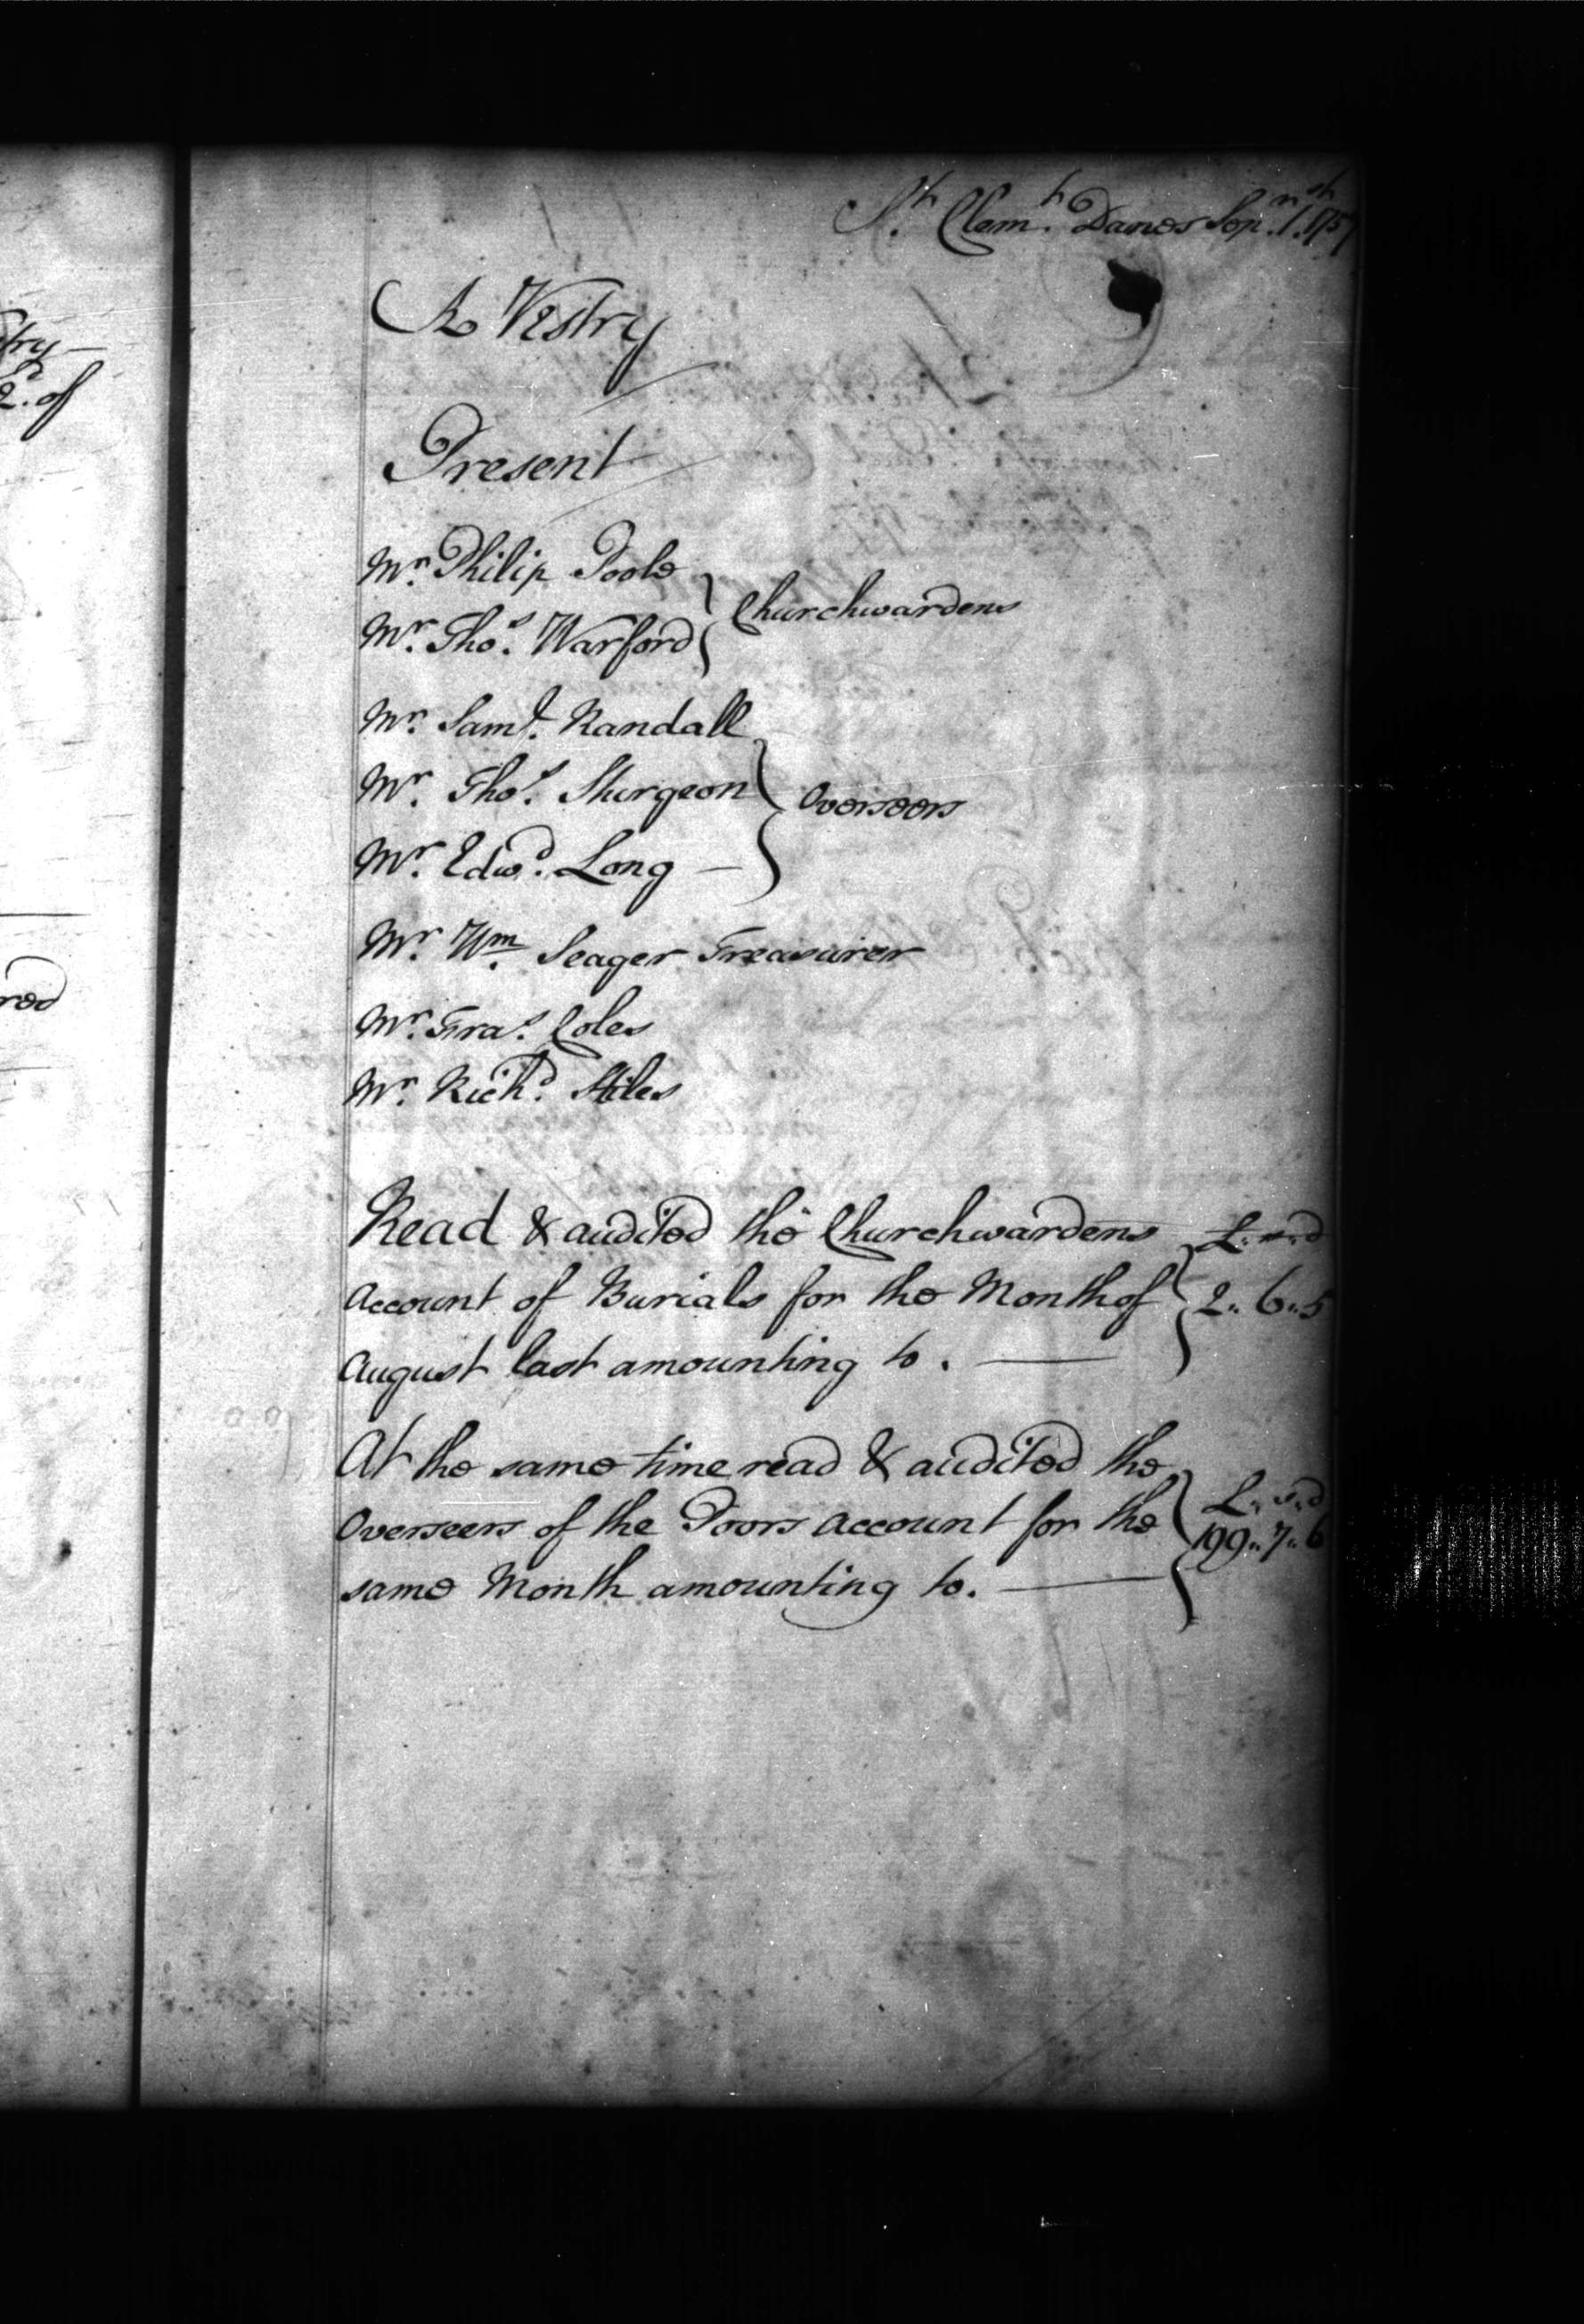 try
2d. of
red
St. Clemt. Danes Sepr. 1st. 1757
A Vestry
Present
Mr. Philip Poole
Mr. Thos. Warford } Churchwardens
Mr. Saml. Randall
Mr. Thos. Sturgeon } Overseers
Mr. Edwd. Long —
Mr. Wm. Seager Treasurer
Mr. Fras. Coles
Mr. Richd. Stiles
Read & audited the Churchwardens £ .. s .. d
Account of Burials for the Month of } 2 .. 6 .. 5
August last amounting to. —
At the same time read & audited the
Overseers of the Poors Account for the } £ .. s .. d
same Month amounting to. — 199 .. 7 .. 6